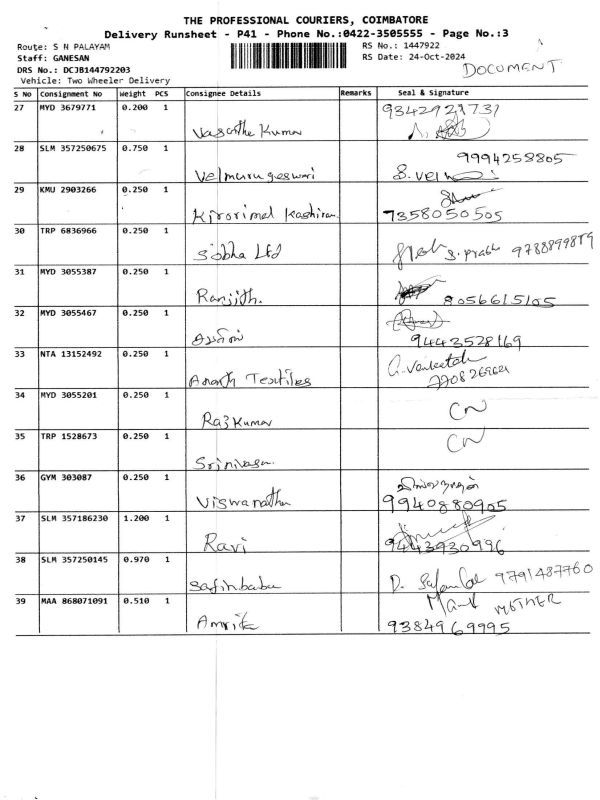 THE PROFESSIONAL COURIERS, COIMBATORE
Delivery Runsheet - P41 - Phone No.:0422-3505555 - Page No.:3
Route: S N PALAYAM
RS No.: 1447922
Staff: GANESAN
RS Date: 24-Oct-2024
DRS No.: DCJB144792203
DOCUMENT
Vehicle: Two Wheeler Delivery
S No Consignment No Weight PCS Consignee Details Remarks Seal & Signature
27 MYD 3679771 0.200 1 Vasantha Kumar 9342921731
28 SLM 357250675 0.750 1 Velmurugeswari 9994258805
29 KMU 2903266 0.250 1 Kirorimal Kashiram 7358050505
30 TRP 6836966 0.250 1 Sobha Ltd S. Prabhu
31 MYD 3055387 0.250 1 Ranjith. 8056615105
32 MYD 3055467 0.250 1 9443528169
33 NTA 13152492 0.250 1 Ananth Textiles G. Venkatesh
34 MYD 3055201 0.250 1 Rajkumar CN
35 TRP 1528673 0.250 1 Srinivasan CN
36 GYM 303087 0.250 1 Viswanathan 9940880905
37 SLM 357186230 1.200 1 Ravi 9443930996
38 SLM 357250145 0.970 1 Safinbabu 9791487760
39 MAA 868071091 0.510 1 Amrita MOTHER
9384969995